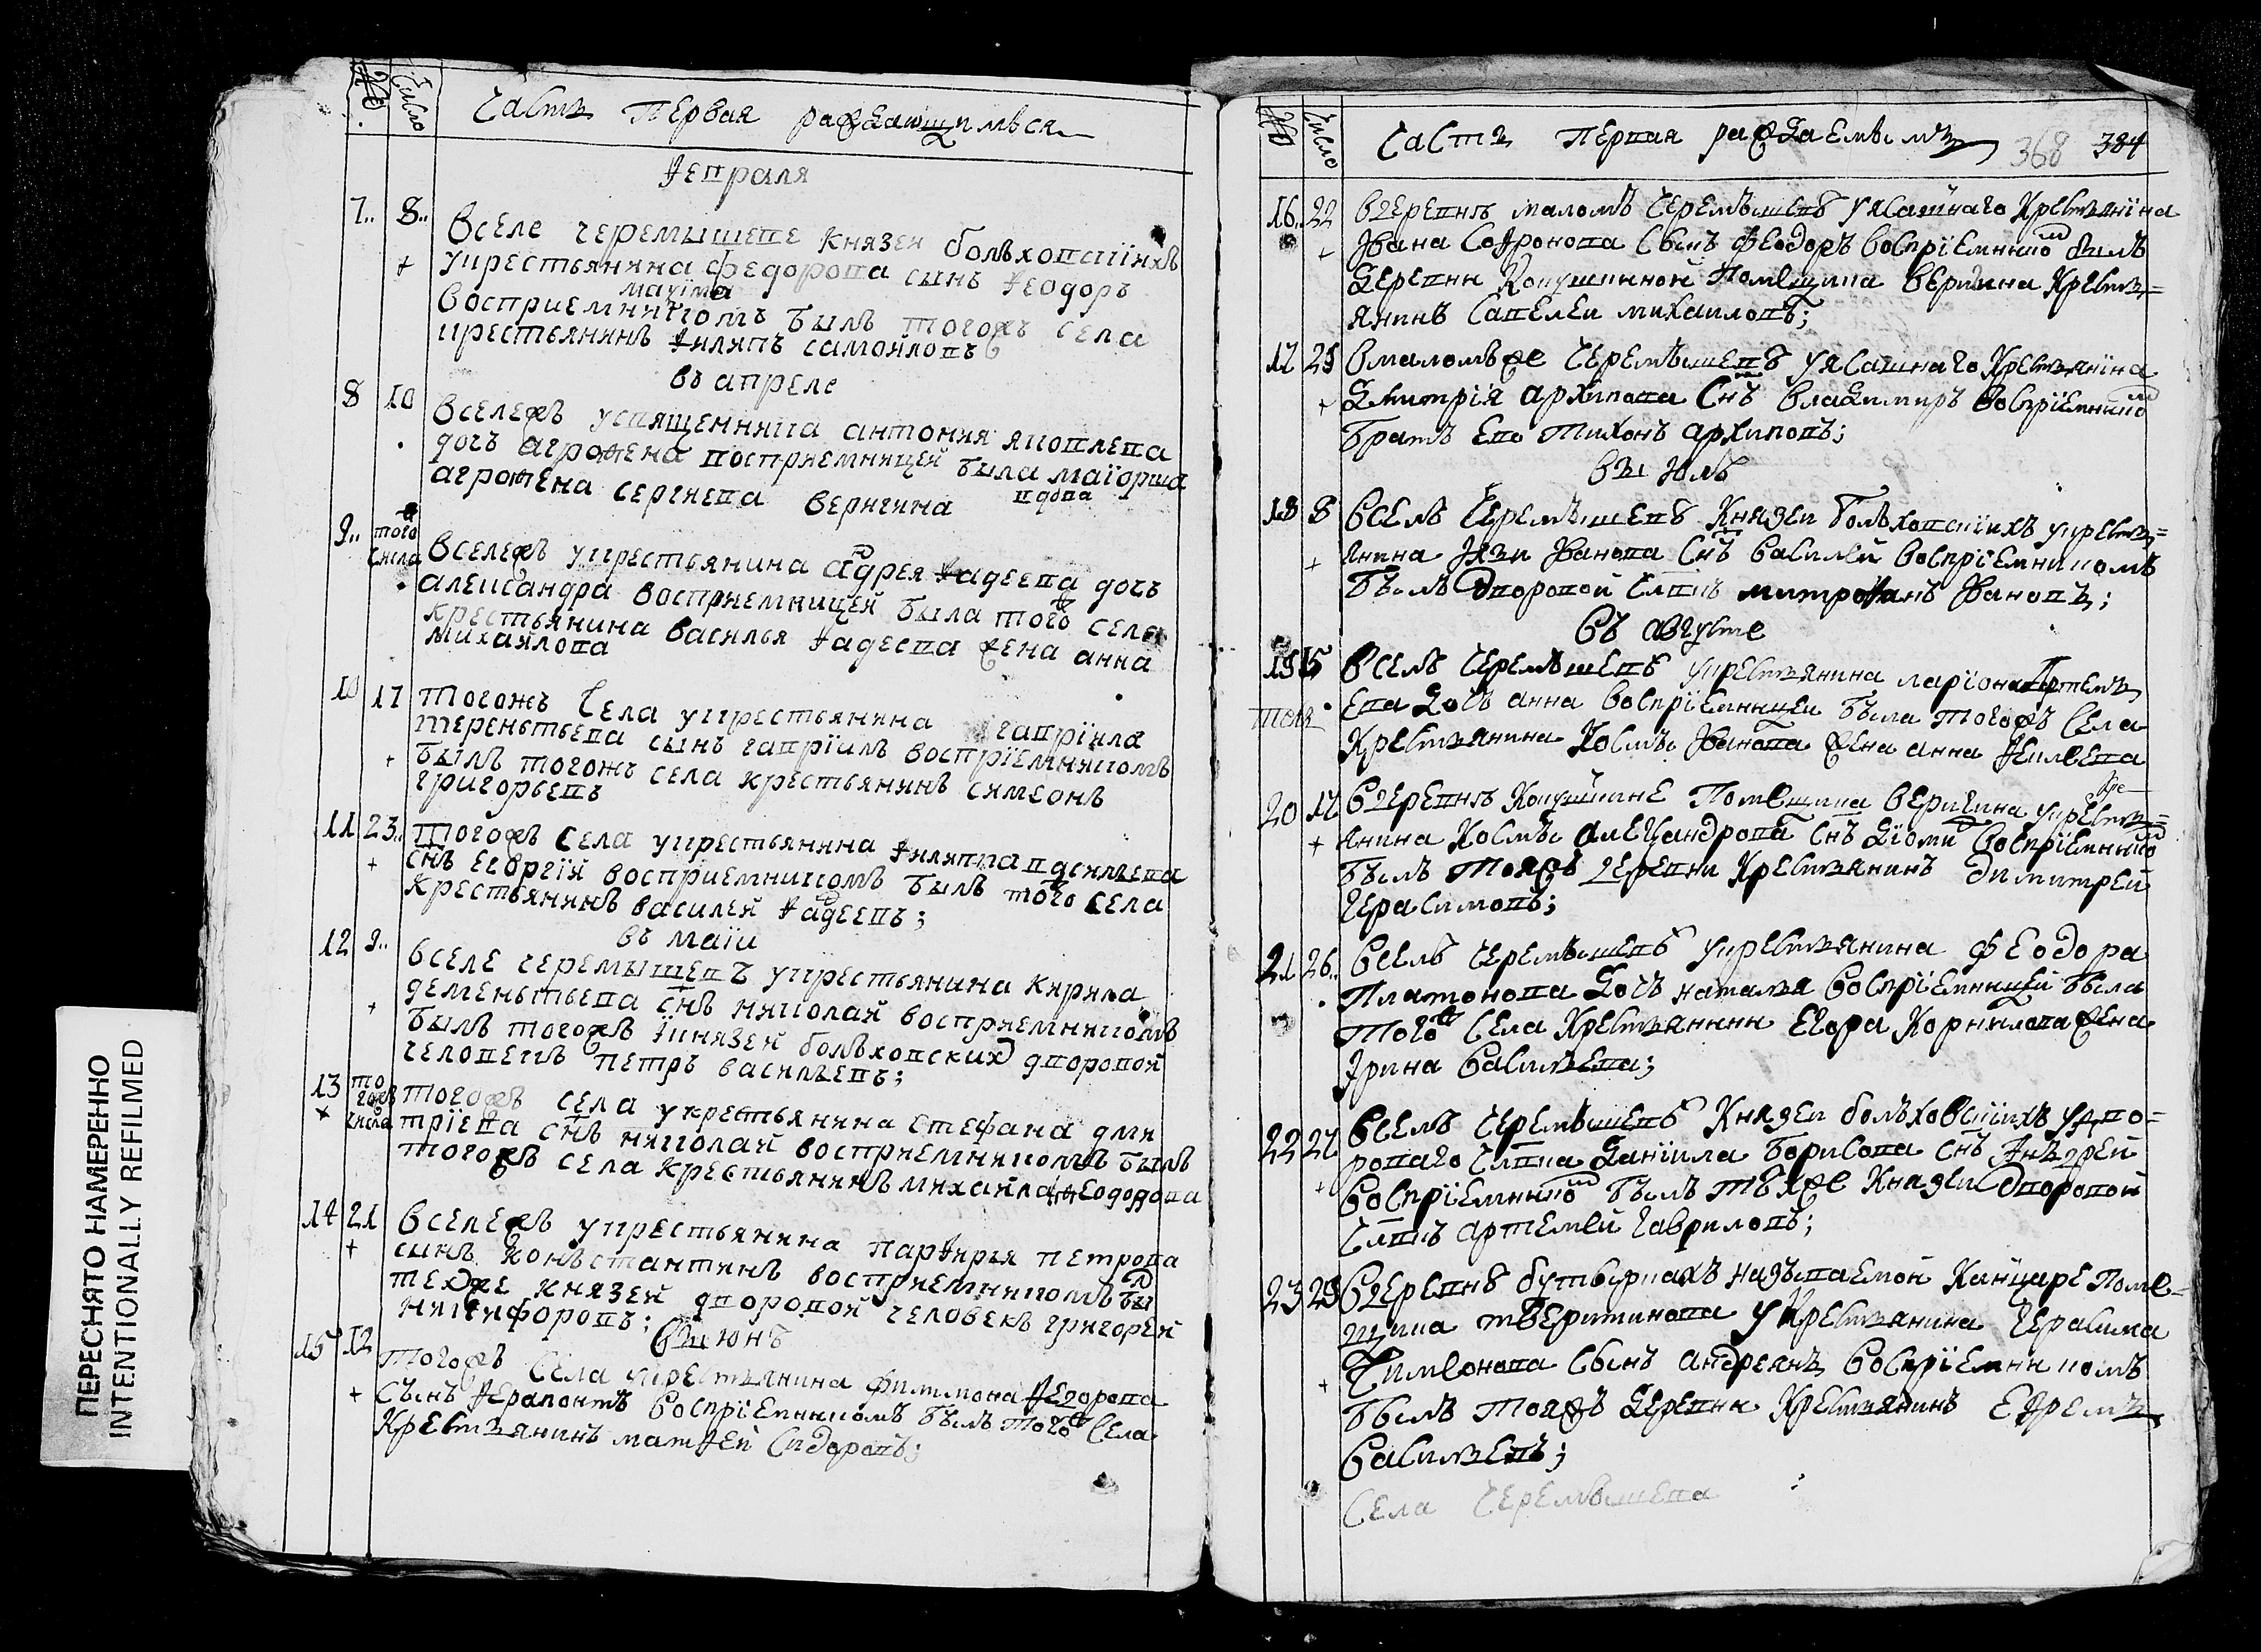 № Число Часть Первая раждающимъся
Февраля
7.. 8.. Вселе черемышеве князей болъховскихъ
укрестьянина федорова сынъ Феодоръ
максима
восприемникомъ былъ тогожъ села
крестьянинъ Филипъ самойловъ
въ апреле
8 10 Всележъ усвященника антония яковлева
дочь аграфена восприемницей была маіорша
аграфена сергиева веригина вдова
9.. того ж числа Всележъ укрестьянина адрея Фадеева дочь
александра восприемницей была того ж села
крестьянина василья Фадеева жена анна
михайлова
10 17 Тогожъ Села укрестьянина гавріила
терентьева сынъ гавріилъ воспріемникомъ
былъ тогожъ села крестьянинъ симеонъ
григорьевъ
11 23.. Тогожъ Села укрестьянина Филиппа васильева
снъ георгій восприемникомъ былъ того ж села
крестьянинъ василей Фадеевъ;
въ маіи
12 9.. вселе черемышевъ укрестьянина кирила
деменьтьева снъ николай восприемникомъ
былъ тогожъ князей болъховскихъ дворовой
человекъ петръ васильевъ;
13 тогожъ числа тогожъ села укрестьянина стефана дми
тріева снъ николай восприемникомъ былъ
тогожъ села крестьянинъ михайла Феодорова
14 21 Всележъ укрестьянина парфирья петрова
сынъ констаньтинъ восприемникомъ был
техже князей дворовой человекъ григорей
никифоровъ; въ июнъ
15 12 тогожъ села укрестьянина филимона Федорова
сынъ Ферапонтъ воспріемникомъ былъ того ж села
крестьянинъ матфей Сидоровъ;
№ Число Часть Первая раждаемымъ 368 384
16.. 22 Вдеревнѣ маломъ Черемышевѣ уясашнаго Крестьянина
Ивана Софронова Сынъ Феодоръ воспріемником былъ
деревни Кокушкиной Помещика веригина Кресть=
янинъ Савелей михаиловъ;
17 25 Вмаломъже Черемышевѣ уясашнаго Крестьянина
Дмитрія архипова Снъ владимиръ воспріемником
братъ Его тихонъ архиповъ;
въ Июлѣ
18 8 Вселѣ Черемышевѣ Князей болъховскихъ укресть=
янина Иванова Снъ василей воспріемникомъ
былъ дворовой члвкъ митрофанъ Ивановъ;
Въ августе
19 15 Вселѣ Черемышевѣ укрестьянина ларіона Артемь
ева Дочь анна воспріемницей была тогожъ Села
Крестьянина Космы Иванова жена анна
20 17 Вдеревнѣ Кокушкине Помещика веригина укресть=
янина Космы александрова Снъ воспріемником
былъ тояжъ деревни Крестьянинъ димитрей
герасимовъ;
21 26.. Вселѣ Черемышевѣ укрестьянина феодора
Платонова Дочь наталья воспріемницей была
того ж Села Крестьянина Егора Корнилова жена
Ирина васильева;
22 27 Вселѣ Черемышевѣ Князей болъховскихъ удво=
роваго члвка Даніила борисова снъ Андрей
воспріемником былъ тѣхже Князей дворовой
члвкъ артемей гавриловъ;
23 29 Вдеревнѣ бутыркахъ называемой Канцаре Поме=
щика тверитинова укрестьянина герасима
Симеонова Сынъ андреянъ воспріемникомъ
былъ тояжъ деревни Крестьянинъ Ефремъ
васильевъ;
Села Черемышева
ПЕРЕСНЯТО НАМЕРЕННО
INTENTIONALLY REFILMED